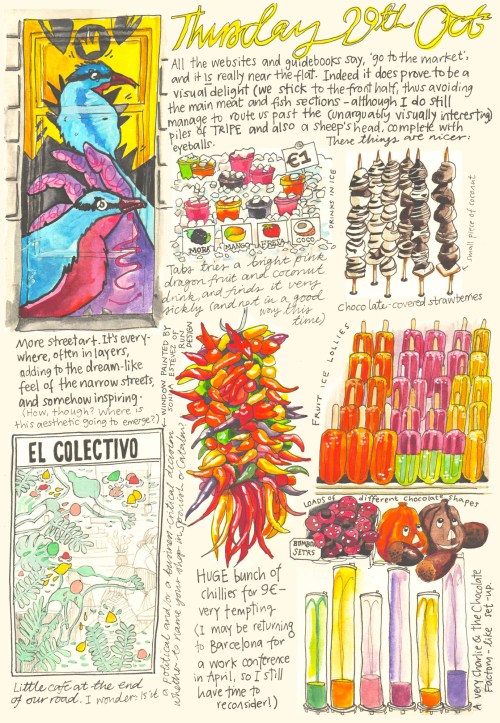 Thursday 29th Oct
All the websites and guidebooks say, 'go to the market',
and it is really near the flat. Indeed it does prove to be a
visual delight (we stick to the front half, thus avoiding
the main meat and fish sections - although I do still
manage to route us past the (unarguably visually interesting)
piles of TRIPE and also a sheep's head, complete with
eyeballs.
These things are nicer.
€1
DRINKS IN ICE
MORA
MANGO
FRESA
COCO
Tabs tries a bright pink
dragon fruit and coconut
drink and finds it very
sickly (and not in a good
way this
time)
small piece of coconut
Chocolate-covered strawberries
More street art. It's every-
where, often in layers,
adding to the dream-like
feel of the narrow streets,
and somehow inspiring.
(How, though? Where is
this aesthetic going to emerge?)
WINDOW PAINTED BY
SONIA ESTEVEZ OF
RUN
DESIGN
FRUIT ICE LOLLIES
EL COLECTIVO
Little café at the end
of our road. I wonder: is it
a political and/or a business-critical decision
whether to name your shop in Spanish or Catalan?
HUGE bunch of
chillies for 9€ -
very tempting
(I may be returning
to Barcelona for
a work conference
in April, so I still
have time to
reconsider!)
LOADS of different chocolate shapes
BOMBO
SETAS
A very Charlie & the Chocolate
Factory-like set-up.